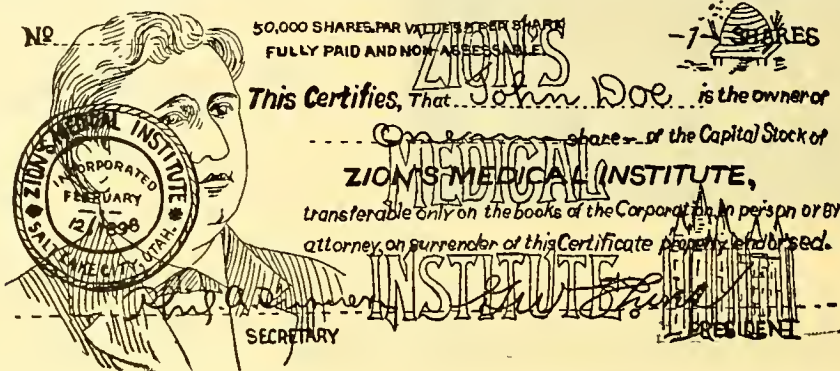 Nº
50,000 SHARES, PAR VALUE $ PER SHARE
FULLY PAID AND NON-ASSESSABLE
-1- SHARES
ZION'S
This Certifies, That John Doe is the owner of
One share of the Capital Stock of
MEDICAL
ZION'S MEDICAL INSTITUTE,
transferable only on the books of the Corporation in person or BY
attorney, on surrender of this Certificate properly endorsed.
INSTITUTE
ZION'S MEDICAL INSTITUTE
INCORPORATED
FEBRUARY
12/1898
SALT LAKE CITY, UTAH.
SECRETARY
PRESIDENT